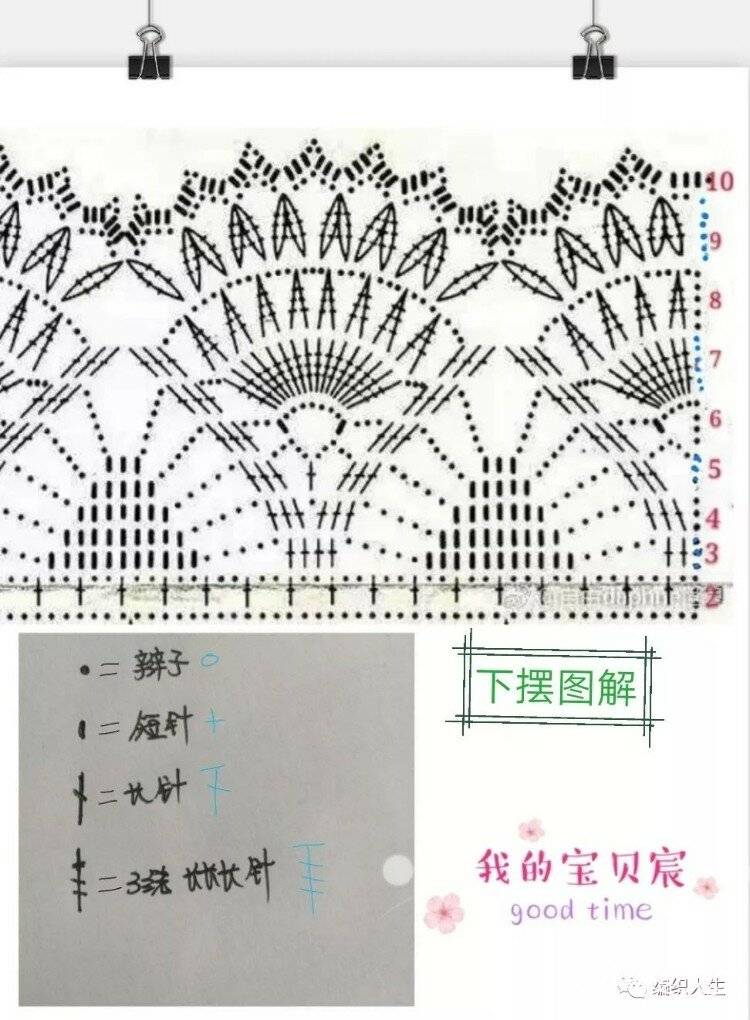 10
9
8
7
6
5
4
3
2
= 辫子
= 短针
= 长针
= 3绕长长长针
下摆图解
我的宝贝宸
good time
编织人生